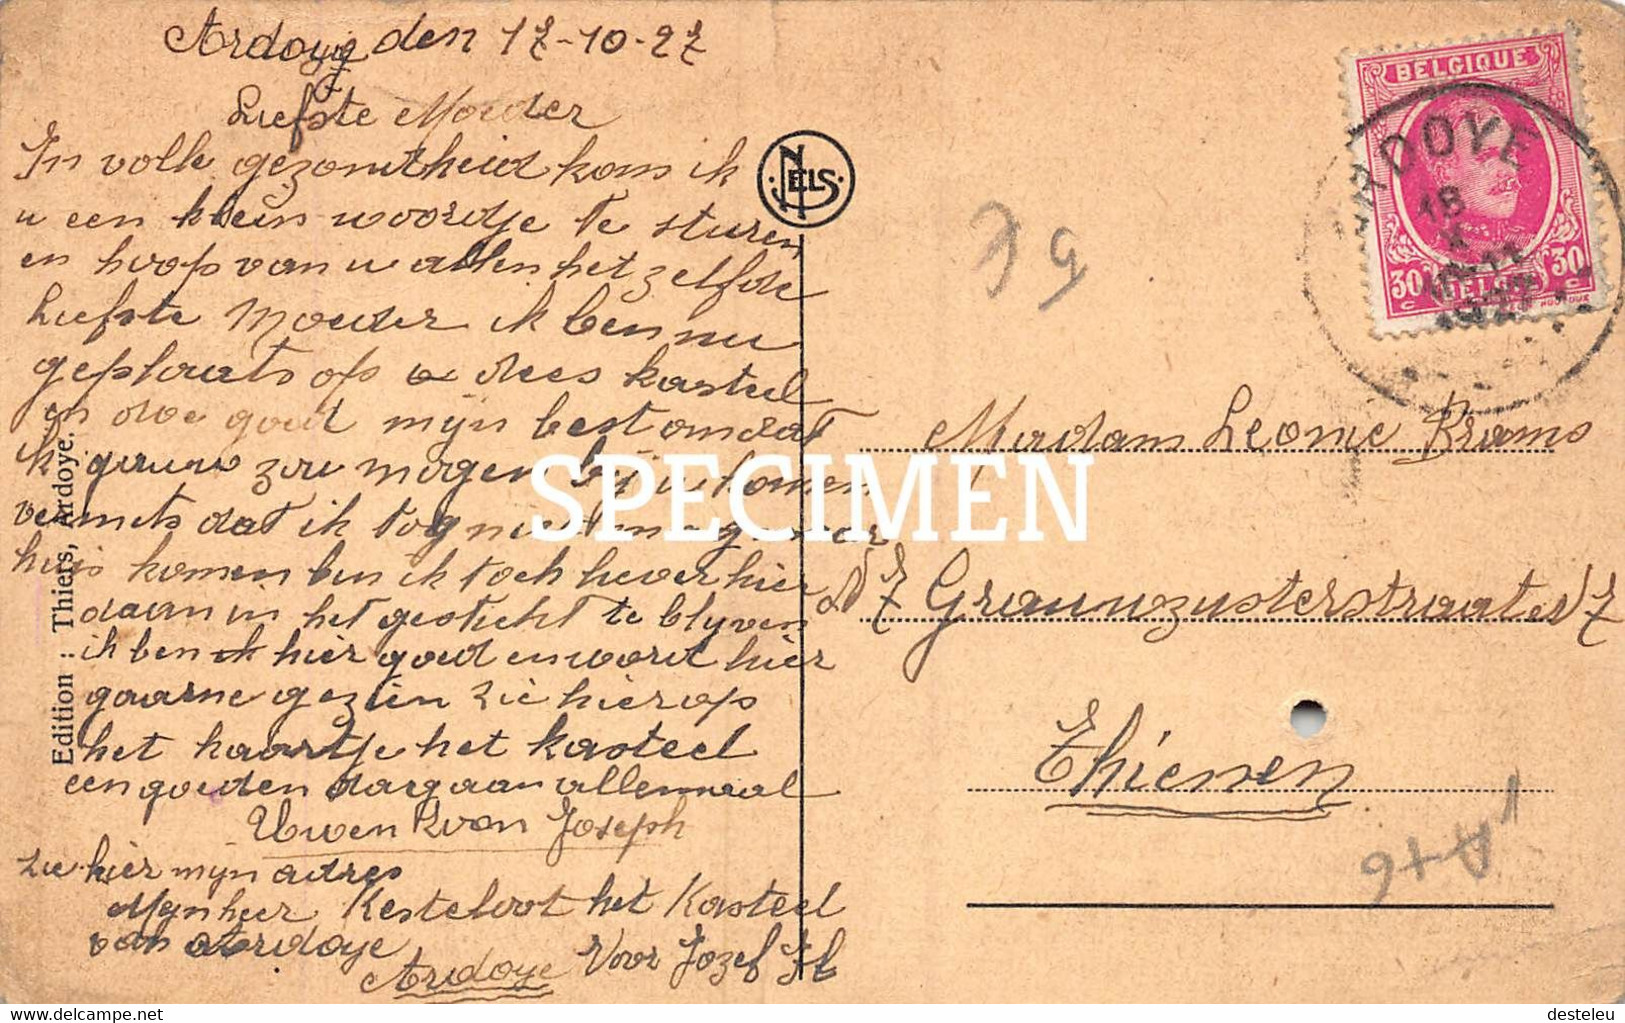 Ardoye den 17-10-27
Liefste Moeder
In volle gezontheid kom ik
u een klein woordje te sturen
en hoop van u allen het zelfde
Liefste Moeder ik ben nu
geplaats op dees kasteel
en doe goed mijn best omdat
ik gauw zou mogen bij u komen
vermits dat ik tog niet mag naar
huis komen ben ik toch liever hier
daan in het gesticht te blyven
ik ben hier goed en word hier
gaarne gezien zie hier op
het kaartje het kasteel
een goeden dag aan allemaal
Uwen Zoon Joseph
zie hier mijn adres
Mijnheer Kesteloot het Kasteel
van Ardoye
Ardoye Voor Jozef
Edition : Thiers, Ardoye.
NELS
SPECIMEN
BELGIQUE
30 BELGIË 30
ARDOYE
18
X
1927
Madam Leonie Brams
N 7 Grauwzusterstraat N 7
Thienen
A+6
delcampe.net
desteleu